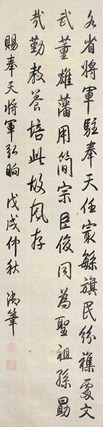 各省將軍駐奉天任最繁旗民紛雜處文
武董雄藩用簡宗臣俊同為聖祖孫勗
哉勤教養培此故風存
賜奉天將軍弘晌 戊戌仲秋 御筆